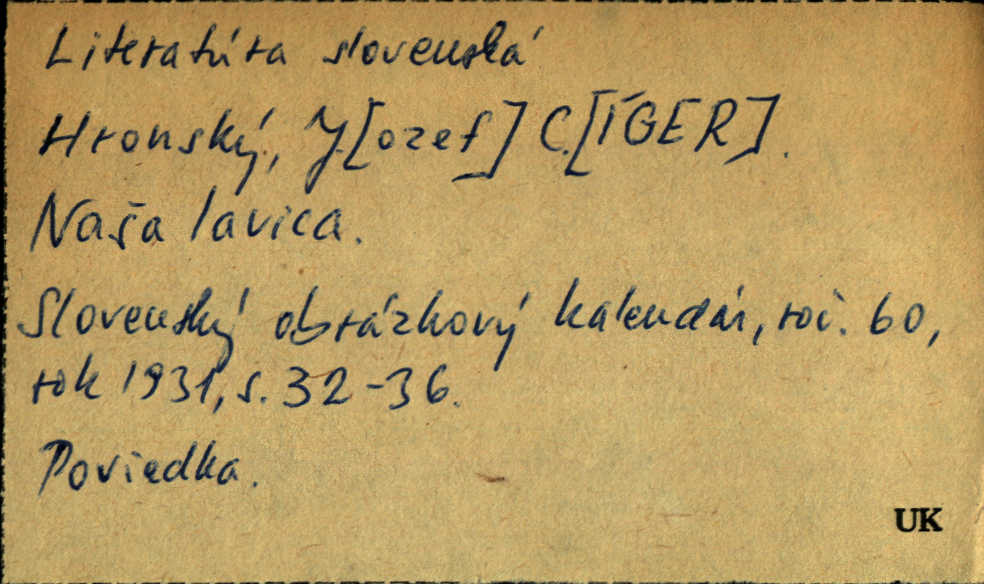 Literatúra slovenská
Hronský, J[ozef] C.[ÍGER].
Naša lavica.
Slovenský obrázkový kalendár, roč. 60,
rok 1931, s. 32-36.
Poviedka.
UK